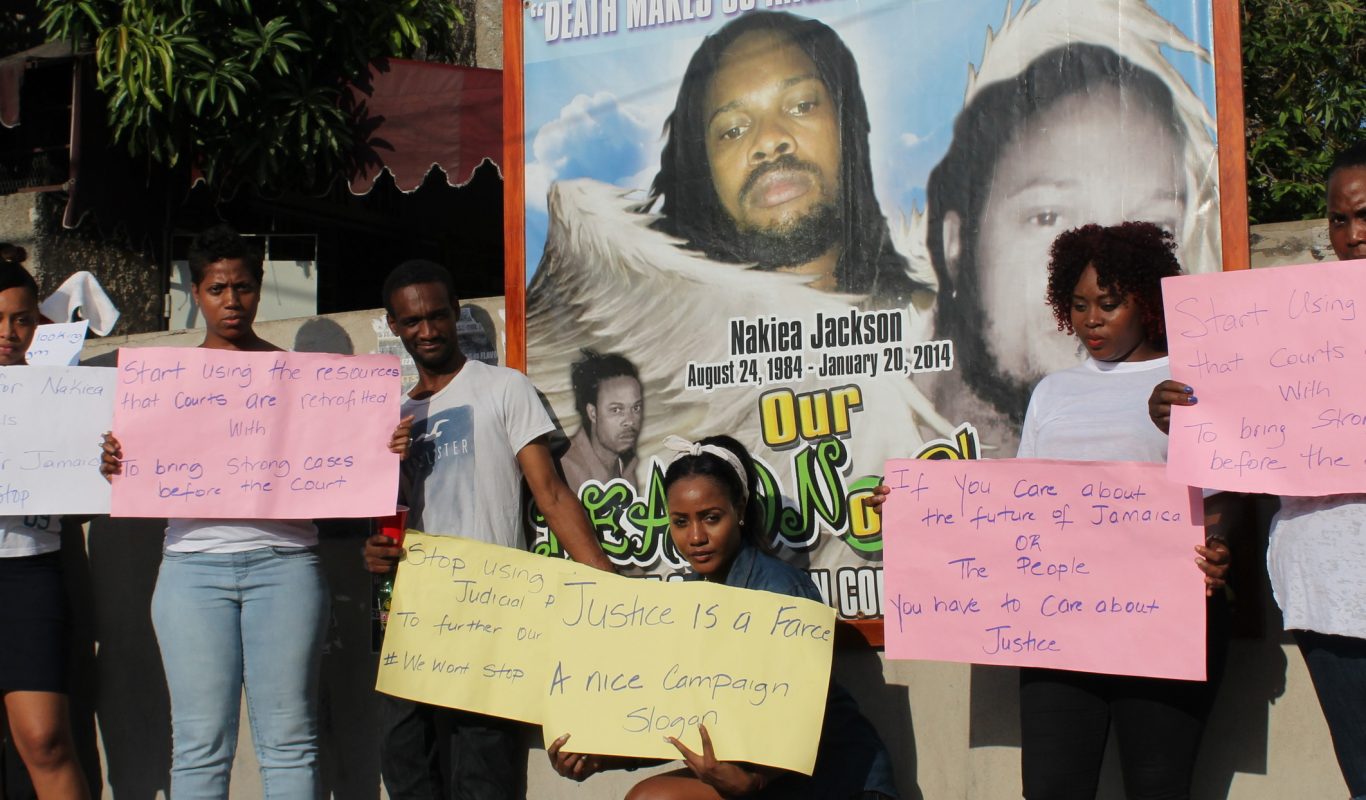 "DEATH MAKES US
Nakiea Jackson
August 24, 1984 - January 20, 2014
Our
looking
for Nakiea
Jamaica
Stop
Start using the resources
that Courts are retrofitted
With
To bring Strong cases
before the Court
Stop using
Judicial
To further our
# We Wont Stop
Justice Is a Farce
A nice Campaign
Slogan
If You Care about
the future of Jamaica
OR
The People
You have to Care about
Justice
Start Using
that Courts
With
To bring Stro
before the